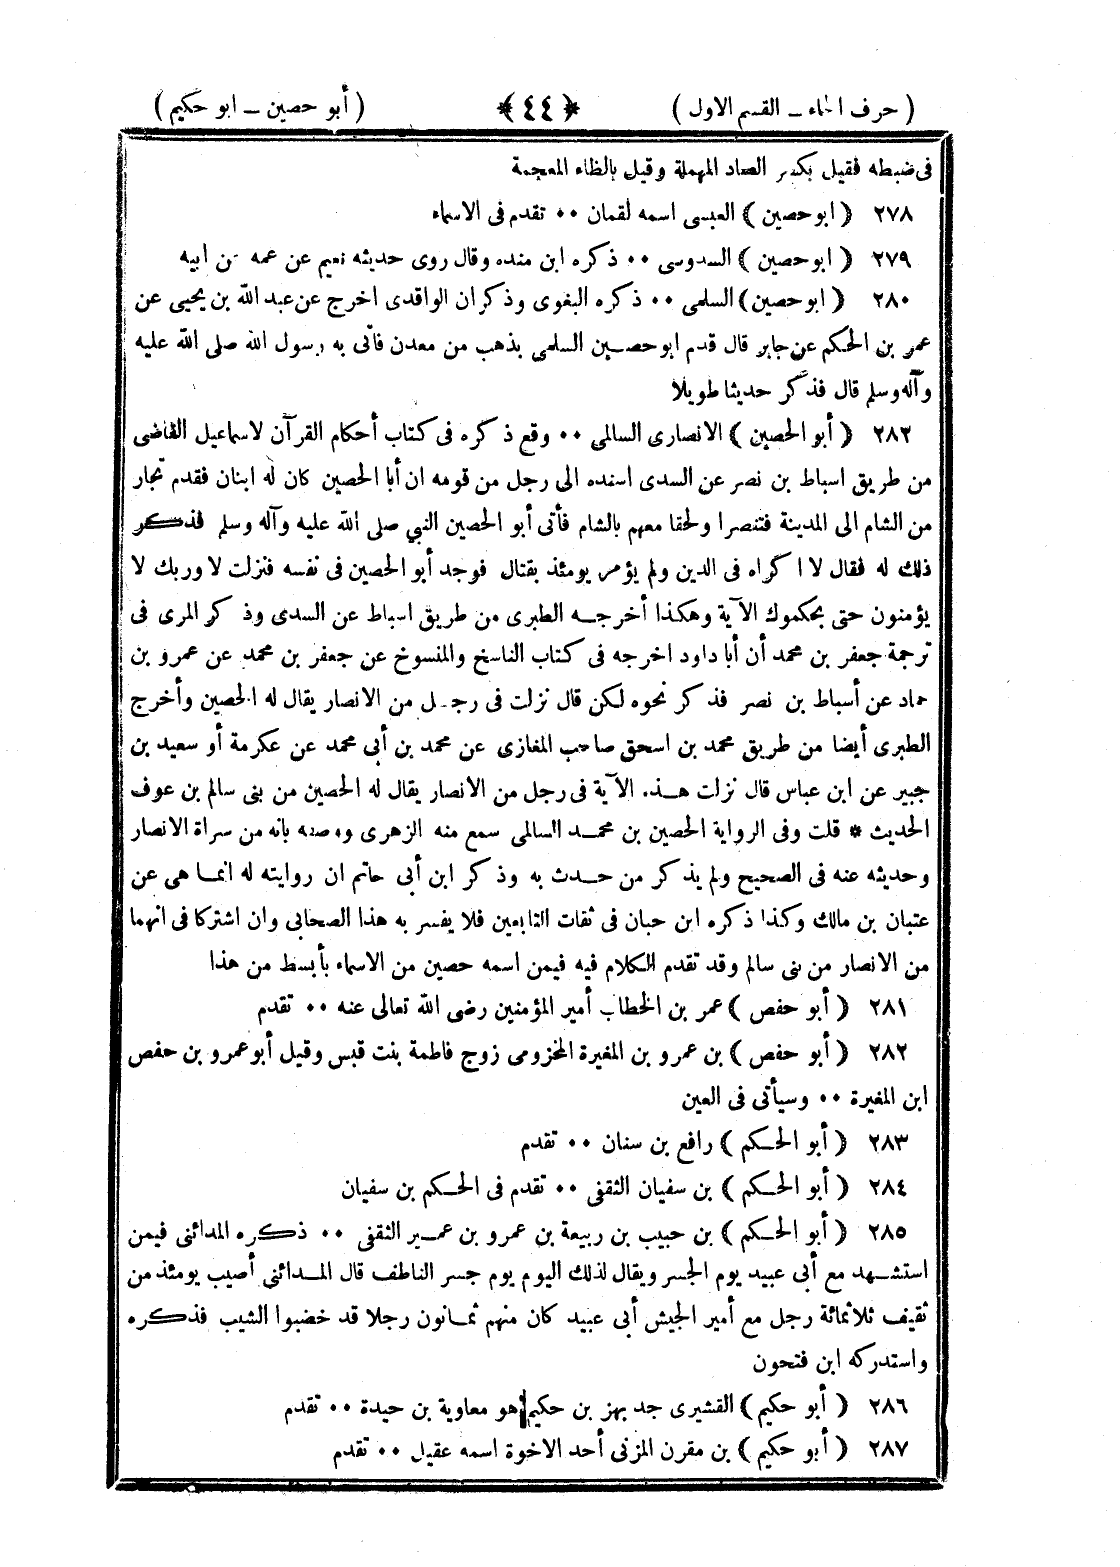 ( حرف الحاء ــ القسم الاول ) ﴿ ٤٤ ﴾ ( أبو حصين ــ ابو حكيم )
فى ضبطه فقيل بكسر الصاد المهملة وقيل بالظاء المعجمة
٢٧٨ ( ابو حصين ) العبسى اسمه لقمان ٠٠ تقدم فى الاسماء
٢٧٩ ( ابو حصين ) السدوسى ٠٠ ذكره ابن منده وقال روى حديثه نعيم عن عمه عن ابيه
٢٨٠ ( ابو حصين ) السلمى ٠٠ ذكره البغوى وذكر ان الواقدى اخرج عن عبد الله بن يحيى عن
عمر بن الحكم عن جابر قال قدم ابو حصين السلمى بذهب من معدن فأتى به رسول الله صلى الله عليه
وآله وسلم قال فذكر حديثا طويلا
٢٨٢ ( أبو الحصين ) الانصارى السالمى ٠٠ وقع ذكره فى كتاب أحكام القرآن لاسماعيل القاضى
من طريق اسباط بن نصر عن السدى اسنده الى رجل من قومه ان أبا الحصين كان له ابنان فقدم تجار
من الشام الى المدينة فتنصرا ولحقا معهم بالشام فأتى أبو الحصين النبي صلى الله عليه وآله وسلم فذكر
ذلك له فقال لا اكراه فى الدين ولم يؤمر يومئذ بقتال فوجد أبو الحصين فى نفسه فنزلت لا وربك لا
يؤمنون حتى يحكموك الآية وهكذا أخرجه الطبرى من طريق اسباط عن السدى وذكر المزى فى
ترجمة جعفر بن محمد أن أبا داود اخرجه فى كتاب الناسخ والمنسوخ عن جعفر بن محمد عن عمرو بن
حماد عن أسباط بن نصر فذكر نحوه لكن قال نزلت فى رجل من الانصار يقال له الحصين وأخرج
الطبرى أيضا من طريق محمد بن اسحق صاحب المغازى عن محمد بن أبى محمد عن عكرمة أو سعيد بن
جبير عن ابن عباس قال نزلت هذه الآية فى رجل من الانصار يقال له الحصين من بنى سالم بن عوف
الحديث * قلت وفى الرواية الحصين بن محمد السالمى سمع منه الزهرى ووصفه بانه من سراة الانصار
وحديثه عنه فى الصحيح ولم يذكر من حدث به وذكر ابن أبى حاتم ان روايته له انما هى عن
عتبان بن مالك وكذا ذكره ابن حبان فى ثقات التابعين فلا يفسر به هذا الصحابى وان اشتركا فى انهما
من الانصار من بنى سالم وقد تقدم الكلام فيه فيمن اسمه حصين من الاسماء بأبسط من هذا
٢٨١ ( أبو حفص ) عمر بن الخطاب أمير المؤمنين رضى الله تعالى عنه ٠٠ تقدم
٢٨٢ ( أبو حفص ) بن عمرو بن المغيرة المخزومى زوج فاطمة بنت قيس وقيل أبو عمرو بن حفص
ابن المغيرة ٠٠ وسيأتى فى العين
٢٨٣ ( أبو الحكم ) رافع بن سنان ٠٠ تقدم
٢٨٤ ( أبو الحكم ) بن سفيان الثقفى ٠٠ تقدم فى الحكم بن سفيان
٢٨٥ ( أبو الحكم ) بن حبيب بن ربيعة بن عمرو بن عمير الثقفى ٠٠ ذكره المدائنى فيمن
استشهد مع أبى عبيد يوم الجسر ويقال لذلك اليوم يوم جسر الناطف قال المدائنى أصيب يومئذ من
ثقيف ثلاثمائة رجل مع أمير الجيش أبى عبيد كان منهم ثمانون رجلا قد خضبوا الشيب فذكره
واستدركه ابن فتحون
٢٨٦ ( أبو حكيم ) القشيرى جد بهز بن حكيم هو معاوية بن حيدة ٠٠ تقدم
٢٨٧ ( أبو حكيم ) بن مقرن المزنى أحد الاخوة اسمه عقيل ٠٠ تقدم